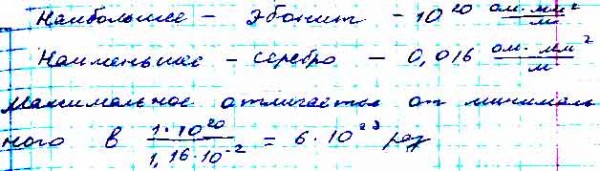 Наибольшее – эбонит – 10²⁰ ом·мм²/м
Наименьшее – серебро – 0,016 ом·мм²/м
Максимальное отличается от минималь
ного в 1·10²⁰/1,16·10⁻² = 6·10²³ раз